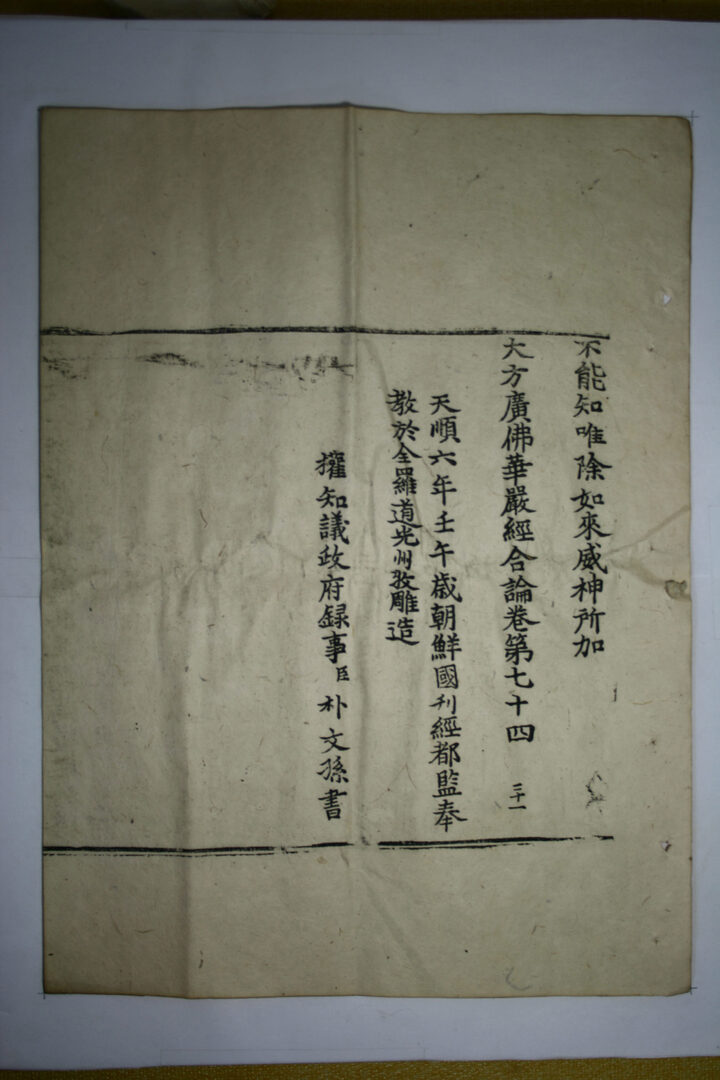 不能知唯除如來威神所加
大方廣佛華嚴經合論卷第七十四 三十一
天順六年壬午歲朝鮮國刊經都監奉
教於全羅道光州牧雕造
權知議政府録事臣朴文孫書